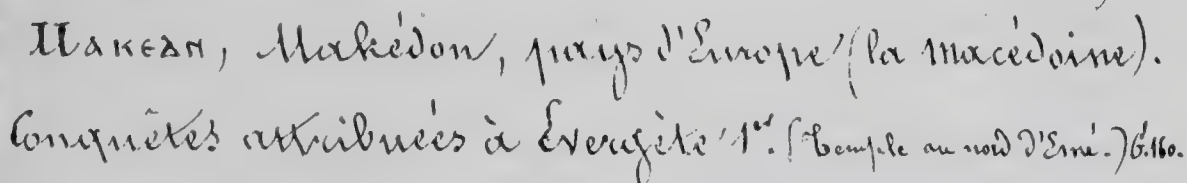 Ⲙⲁⲕⲉⲇⲛ, Makédon, pays d'Europe (la Macédoine).
Conquêtes attribuées à Évergète 1er. (Temple au nord d'Esné.) G. 160.